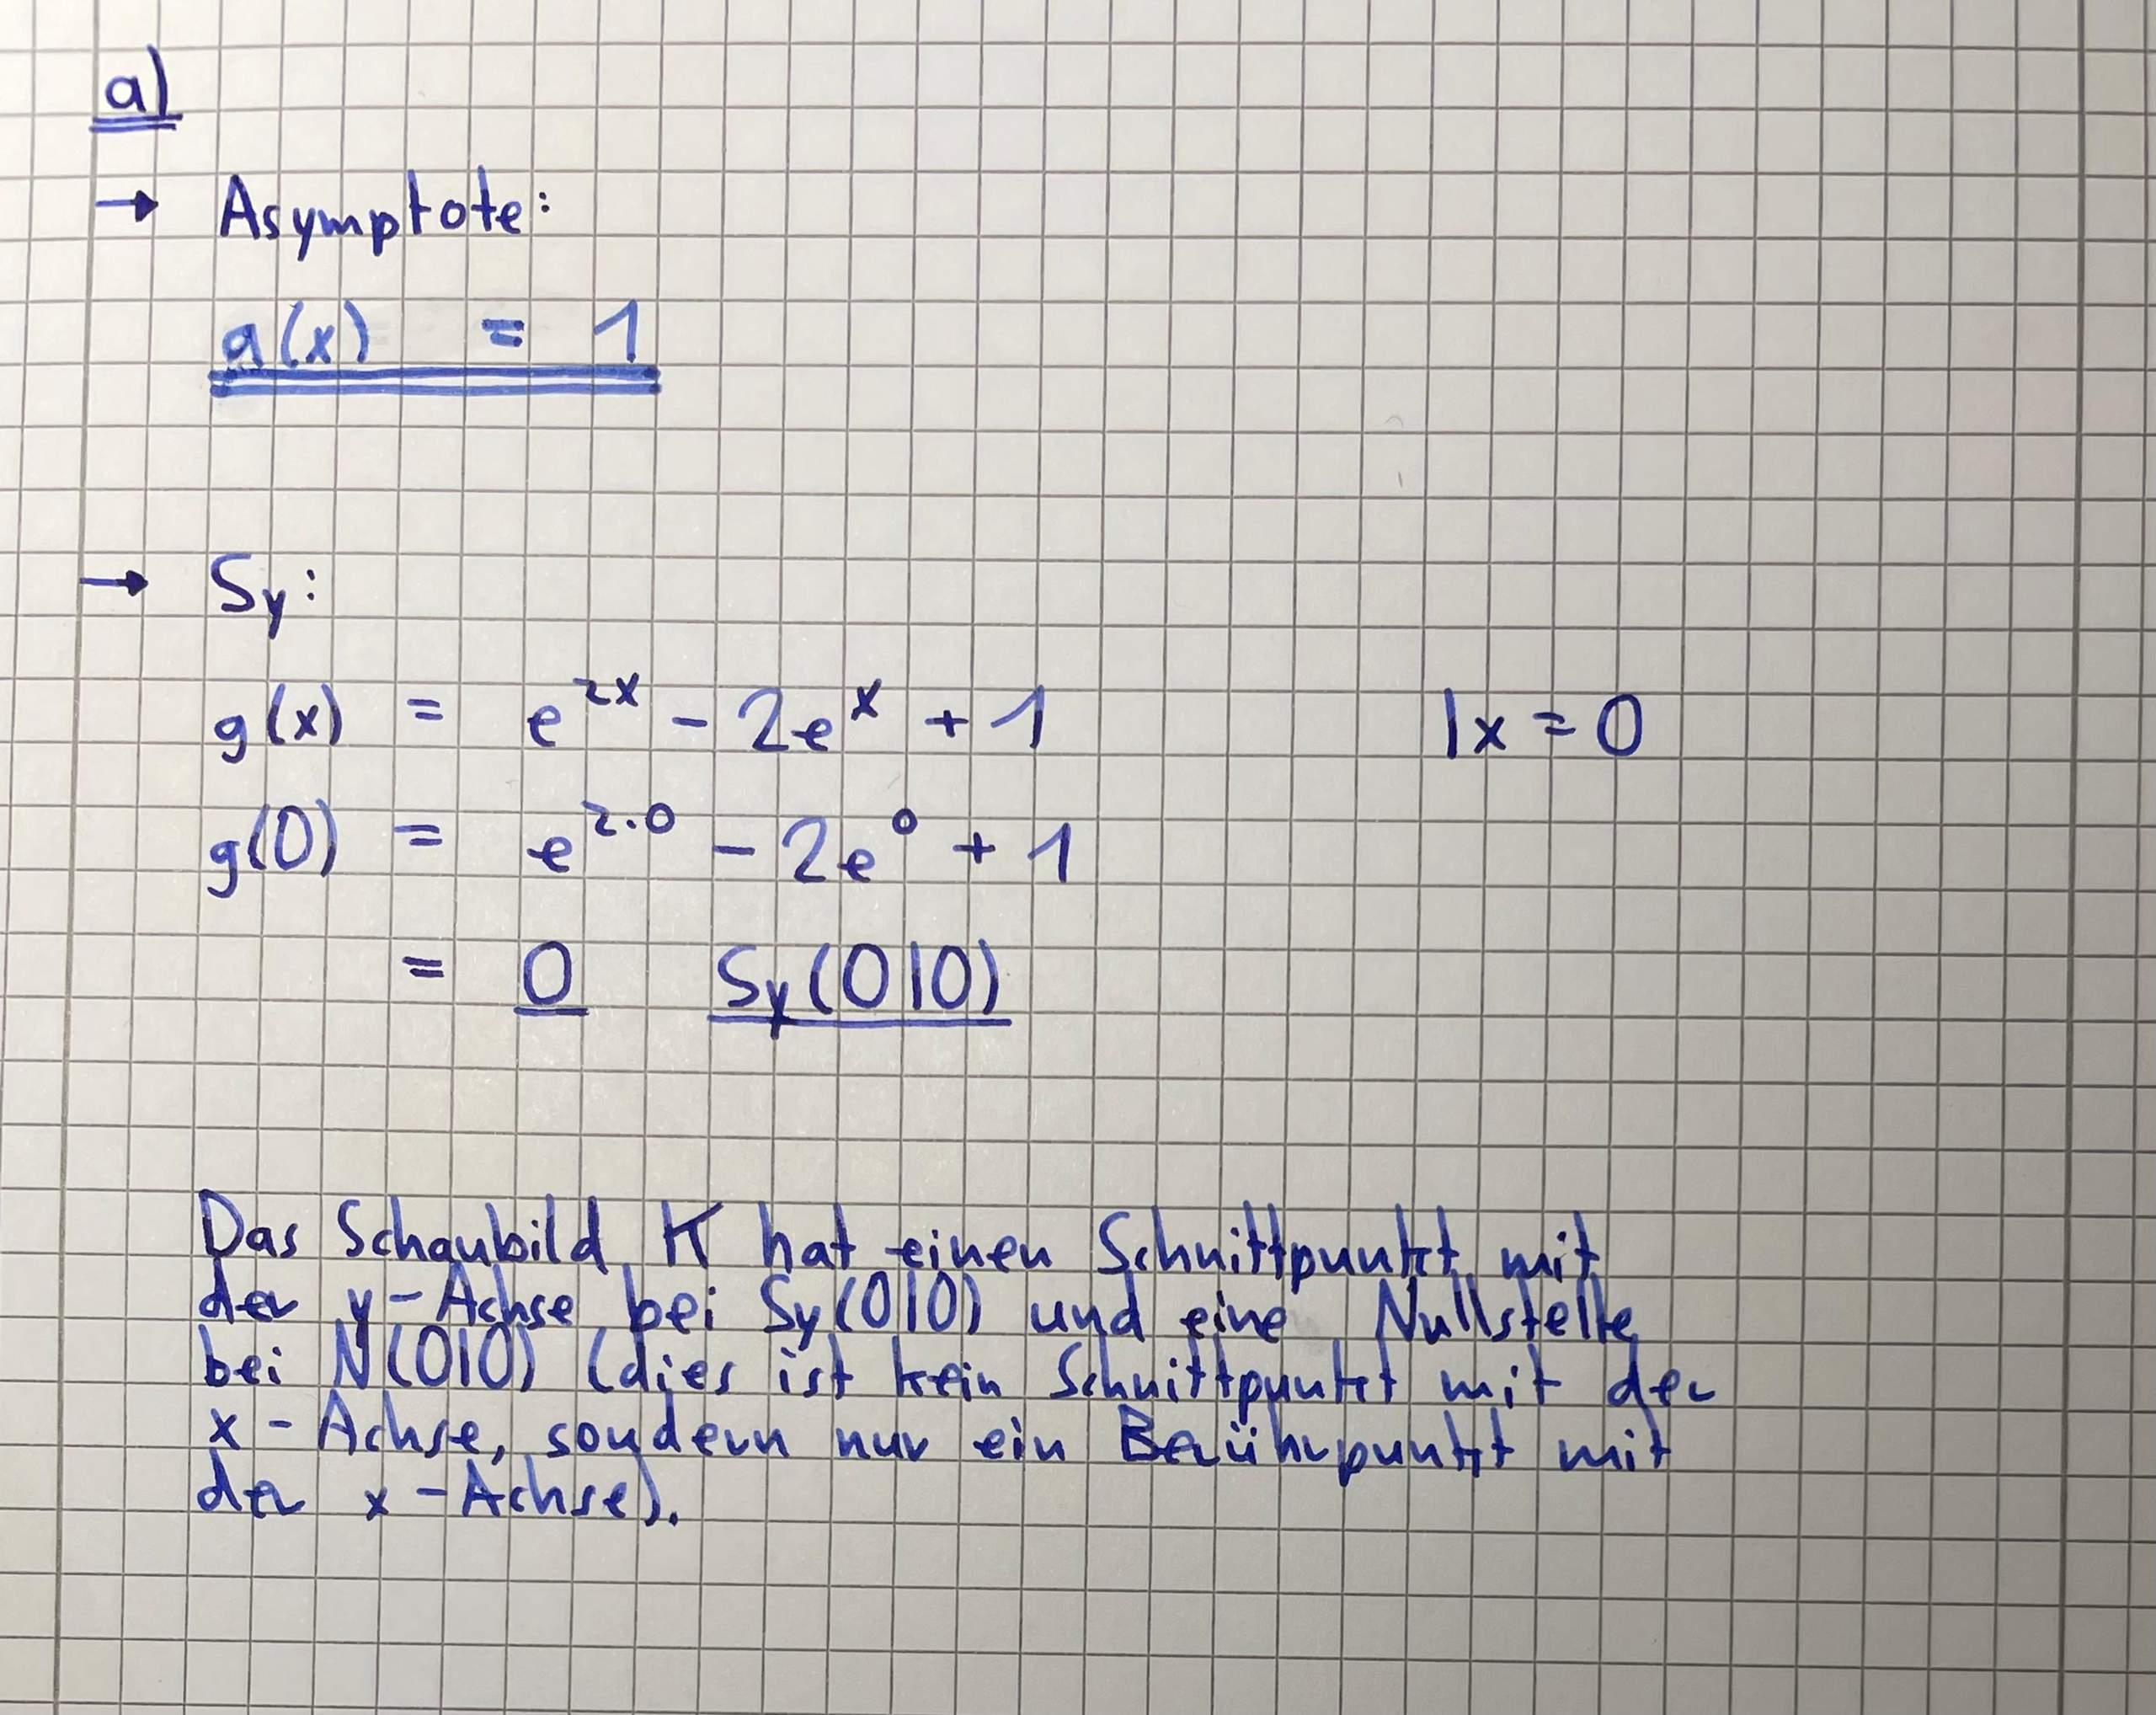 a)
→ Asymptote:
a(x) = 1
→ Sy:
g(x) = e^{2x} - 2e^{x} + 1 | x = 0
g(0) = e^{2·0} - 2e^{0} + 1
= 0 Sy(0|0)
Das Schaubild K hat einen Schnittpunkt mit
der y-Achse bei Sy(0|0) und eine Nullstelle
bei N(0|0) (dies ist kein Schnittpunkt mit der
x-Achse, sondern nur ein Berührpunkt mit
der x-Achse).